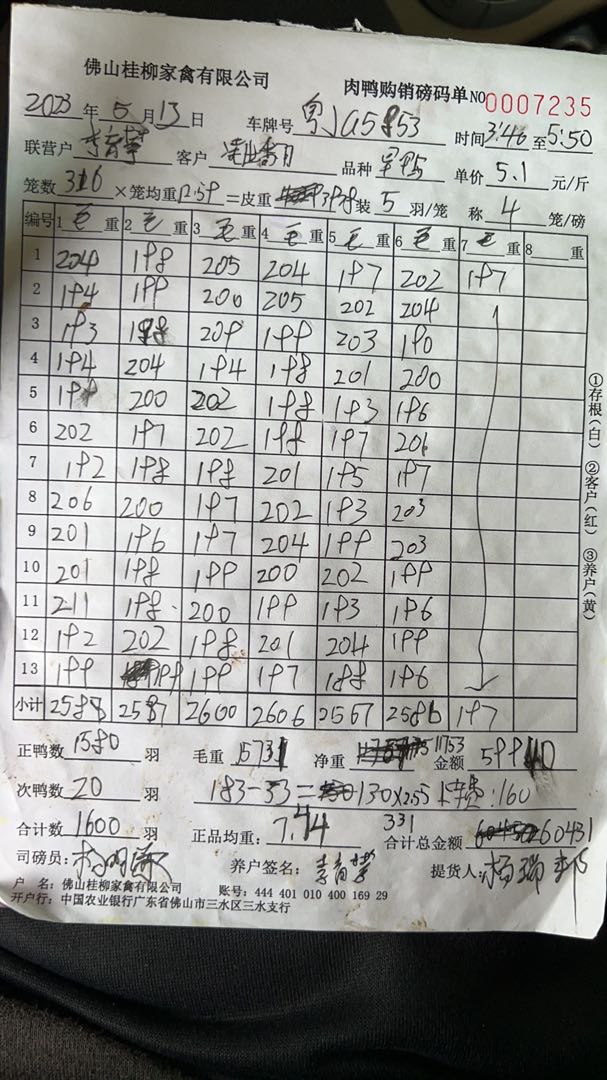 佛山桂柳家禽有限公司 肉鸭购销磅码单 NO 0007235
2023年5月13日 车牌号 粤JA5853 时间3:46至5:50
联营户 客户 品种 单价5.1元/斤
笼数316×笼均重12.59=皮重3978装5羽/笼 称4笼/磅
编号 1毛重 2毛重 3毛重 4毛重 5毛重 6毛重 7毛重 8 重
1 204 198 205 204 197 202 197
2 194 199 200 205 202 204
3 193 198 209 199 203 190
4 194 204 194 198 201 200
5 199 200 202 198 193 196
6 202 197 202 198 197 201
7 192 198 198 201 195 197
8 206 200 197 202 193 203
9 201 196 197 204 199 203
10 201 198 199 200 202 199
11 211 198 200 199 193 196
12 192 202 198 201 204 199
13 199 199 199 197 188 196
小计 2588 2587 2600 2606 2567 2586 197
正鸭数1580羽 毛重15731 净重11753 金额59940
次鸭数20羽 183-53=130×2.55 卡费:160
合计数1600羽 正品均重:7.44 331 合计总金额60431
司磅员: 养户签名: 提货人:
户 名:佛山桂柳家禽有限公司 账号:444 401 010 400 169 29
开户行:中国农业银行广东省佛山市三水区三水支行
①存根(白) ②客户(红) ③养户(黄)